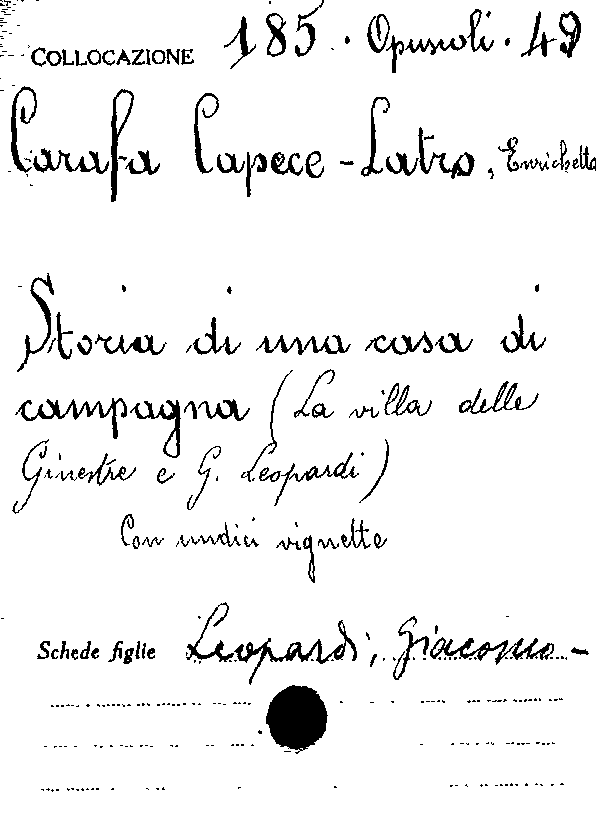 COLLOCAZIONE 185. Opuscoli. 49
Carafa Capece-Latro, Enrichetta
Storia di una casa di
campagna (La villa delle
Ginestre e G. Leopardi)
Con undici vignette
Schede figlie Leopardi, Giacomo-